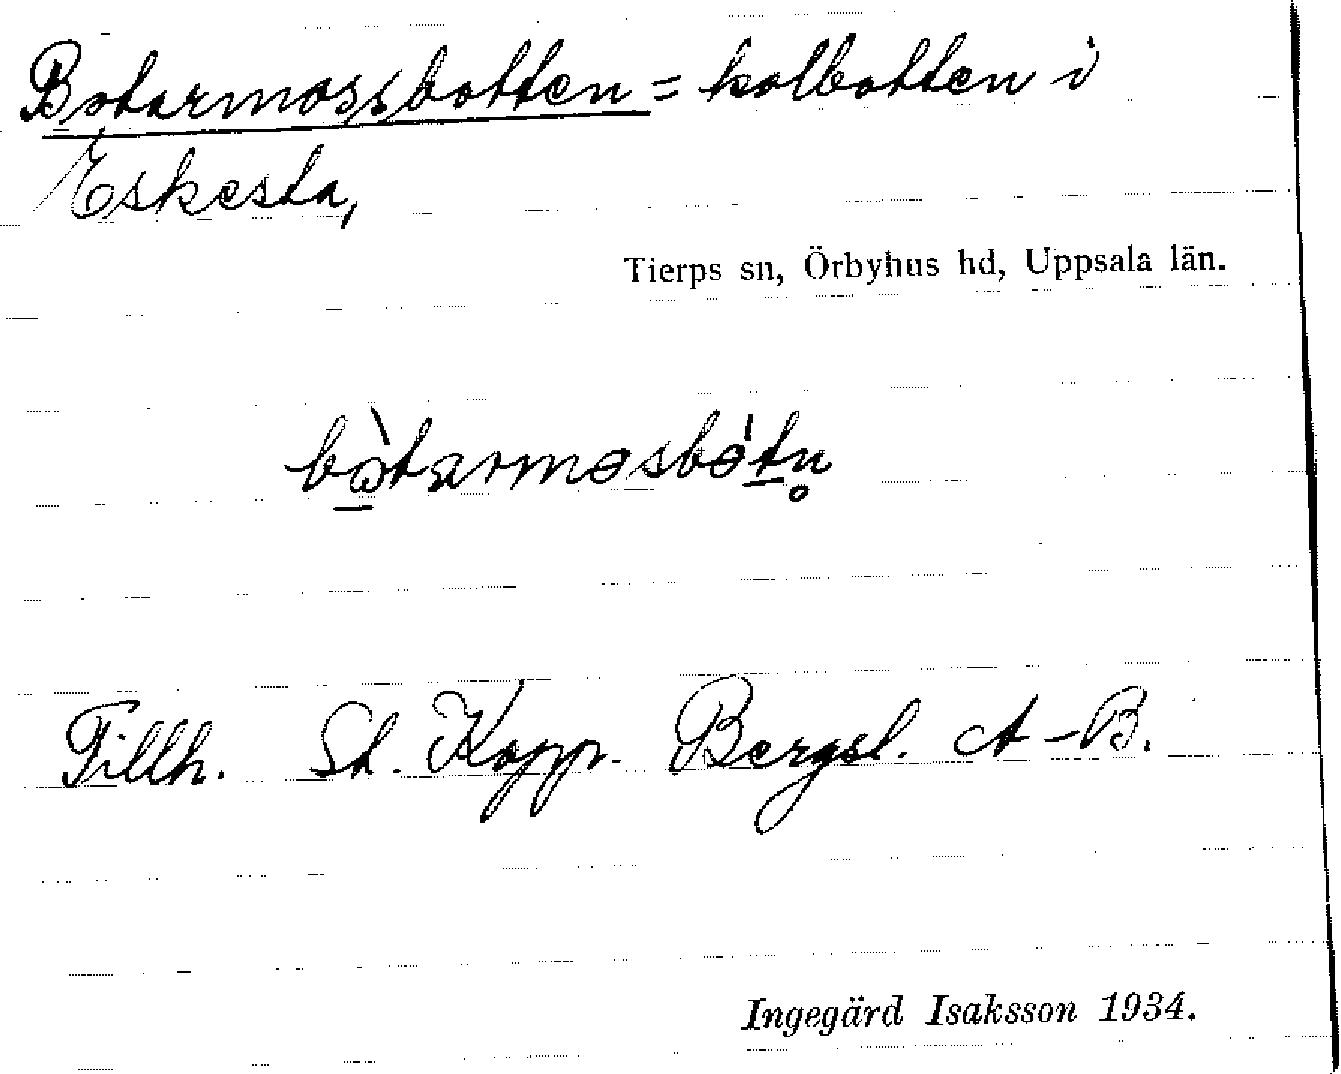 Botarmossbotten = kolbotten i
Eskesta,
Tierps sn, Örbyhus hd, Uppsala län.
bὰtarmɵsbɵ́tn̥
Tillh. St. Kopp. Bergsl. A-B.
Ingegärd Isaksson 1934.